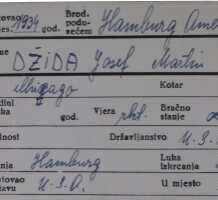 ovao 1934 god. Brod. podu- zećem Hamburg Ame
me DŽIDA Josef Martin
Chicago Kotar
dini god. Vjera rkt. Bračno stanje
lnost Državljanstvo U.S.
nja Hamburg Luka izkrcanja
utovao žavu U.S.A. U mjesto